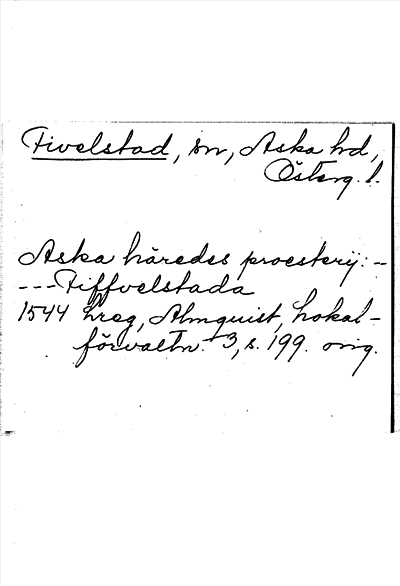 Fivelstad, sn, Aska hd,
Österg. l.
Aska häredes proesterij: -
--- Fiffvelstada
1544 hreg, Almquist, Lokal-
förvaltn. 3, s. 199. orig.